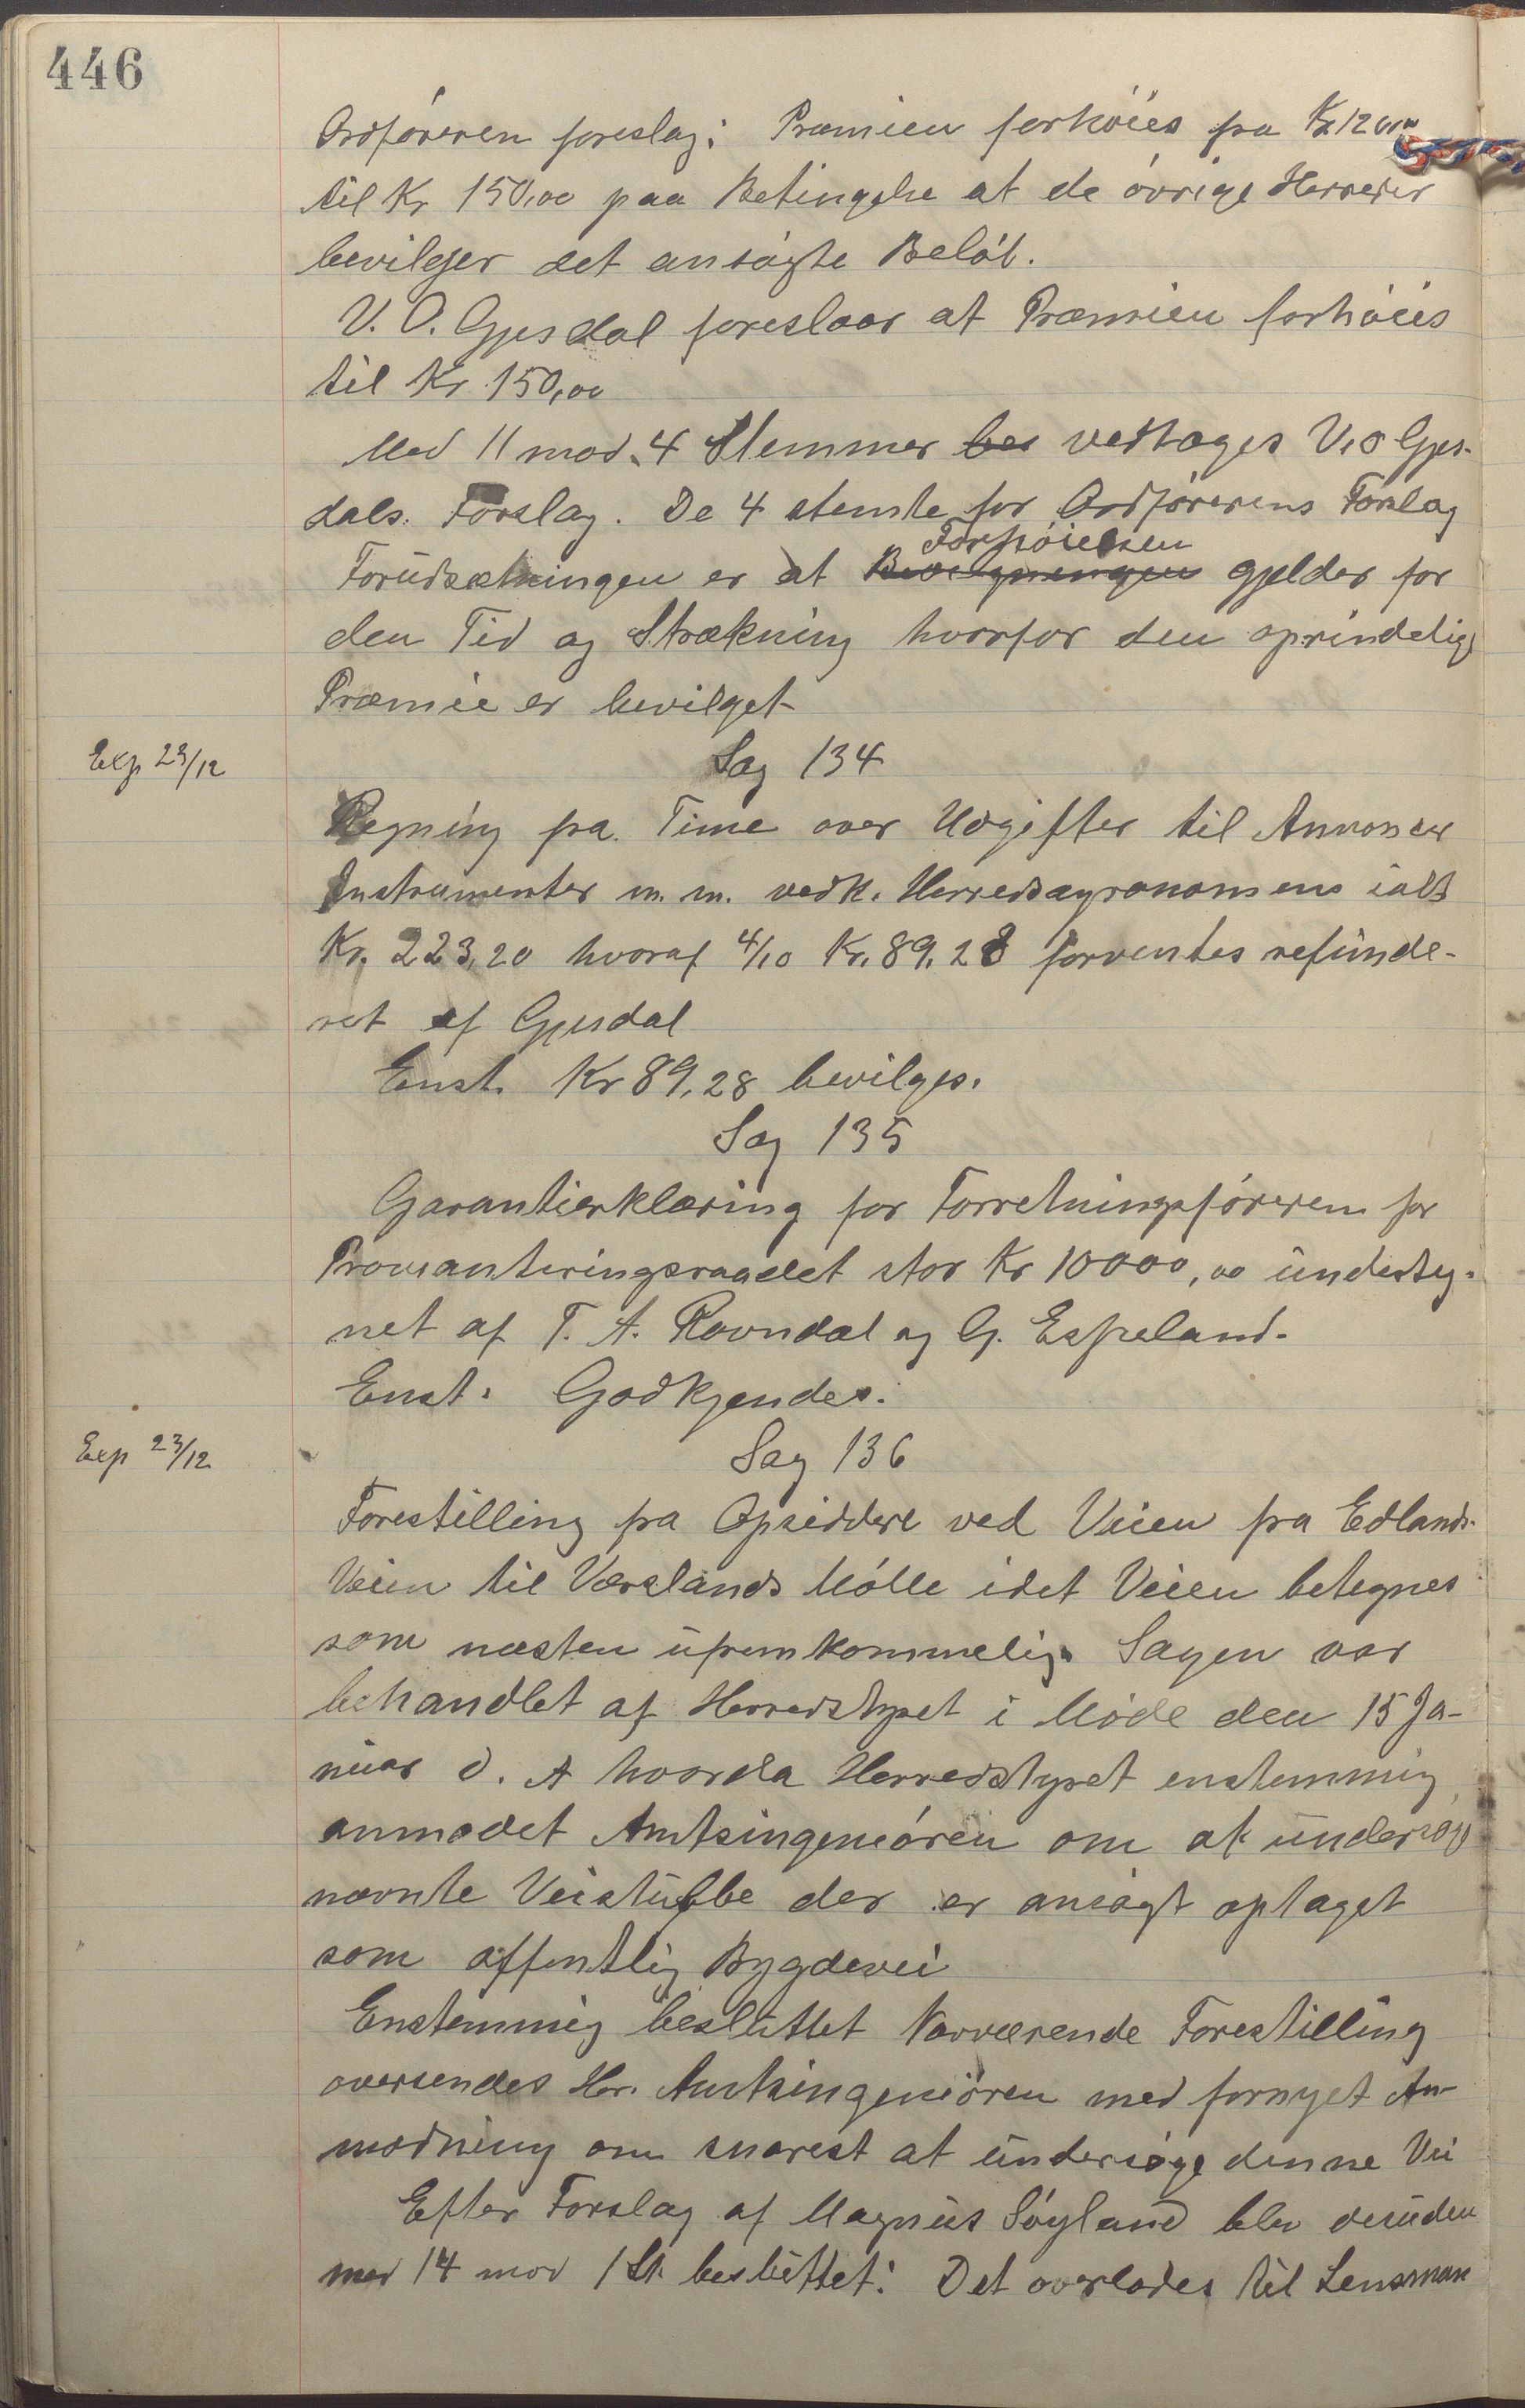 446
Ordføreren foreslog: Præmien forhöies fra Kr 120,00
til Kr 150,00 paa Betingelse at de övrige Herreder
bevilger det ansögte Belöb.
V. O. Gjesdal foreslaar at Præmien forhöies
til Kr. 150,00
Med 11 mod 4 Stemmer bes vedtages V. O Gjes-
dals Forslag. De 4 stemte for Ordförerens Forslag
Forhöielsen
Forudsætningen er at Bevilgningen gjelder for
den Tid og Strækning hvorfor den oprindelig
Præmie er bevilget
Exp 23/12
Sag 134
Regning fra Time over Udgifter til Annoncer
Instrumenter m. m. vedk. Herredsagronomen ialt
Kr. 223,20 hvoraf 4/10 Kr. 89,28 forventes refunde-
ret af Gjesdal
Enst. Kr 89,28 bevilges.
Sag 135
Garantierklæring for Forretningsföreren for
Provianteringsraadet stor Kr 10000,00 undertg-
net af T. A. Ravndal og G. Espeland.
Enst. Godkjendes.
Exp 23/12
Sag 136
Forestilling fra Opsiddere ved Veien fra Edlands-
Veien til Værslands Mölle idet Veien betegnes
som næsten ufremkommelig. Sagen var
behandlet af Herredstyret i Möde den 15 Ja-
nuar d. A hvorda Herredstyret enstemmig
anmodet Amtsingeniören om at undersög
nævnte Veistubbe der er ansögt optaget
som offentlig Bygdevei
Enstemmig besluttet Nærværende Forestilling
oversendes Hr. Amtsingeniören med fornyet An-
modning om snarest at undersöge denne Vei
Efter Forslag af Magnus Söyland blev desuden
med 14 mod 1 St. besluttet: Det overlades til Lensman